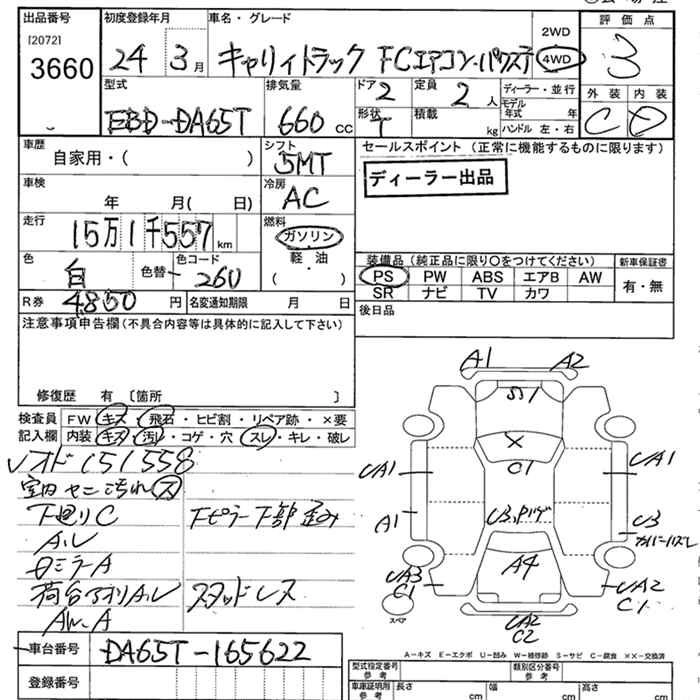 出品番号
[2072]
3660
初度登録年月
24 3月
車名・グレード
キャリィトラック FCエアコン・パワステ
2WD
4WD
評価点
3
外装 内装
C D
型式
EBD-DA65T
排気量
660 cc
ドア 2
形状 T
定員 2 人
積載 kg
ディーラー・並行
モデル年式 年
ハンドル 左・右
車歴
自家用・( )
シフト
5MT
車検
年 月( 日)
冷房
AC
走行
15万1千557km
燃料
ガソリン
軽・油
( )
色
白
色替
カラーコード
260
R券 4850円
名変通知期限 月 日
セールスポイント(正常に機能するものに限ります)
ディーラー出品
装備品(純正品に限り○をつけてください)
PS PW ABS エアB AW
SR ナビ TV カワ
新車保証書
有・無
後日品
注意事項申告欄(不具合内容等は具体的に記入して下さい)
修復歴 有 〔箇所 〕
検査員記入欄
FW キズ・飛石・ヒビ割・リペア跡・×要
内装 キズ・汚レ・コゲ・穴・スレ・キレ・破レ
151558
下廻りC
下ピラー下部歪み
ミラーA
荷台アオリA.U
スタッドレス
A1 A2
SS1
×
C1
UA1 UA1
A1
U3
A4
UA3
C1
UA2
C1
UA2
C2
スペア
A−キズ E−エクボ U−凹み W−補修跡 S−サビ C−腐食 ××−交換済
車台番号 DA65T-165622
登録番号
型式指定番号 参考
類別区分番号 参考
車庫証明用 参考 長さ cm 幅 cm 高さ cm